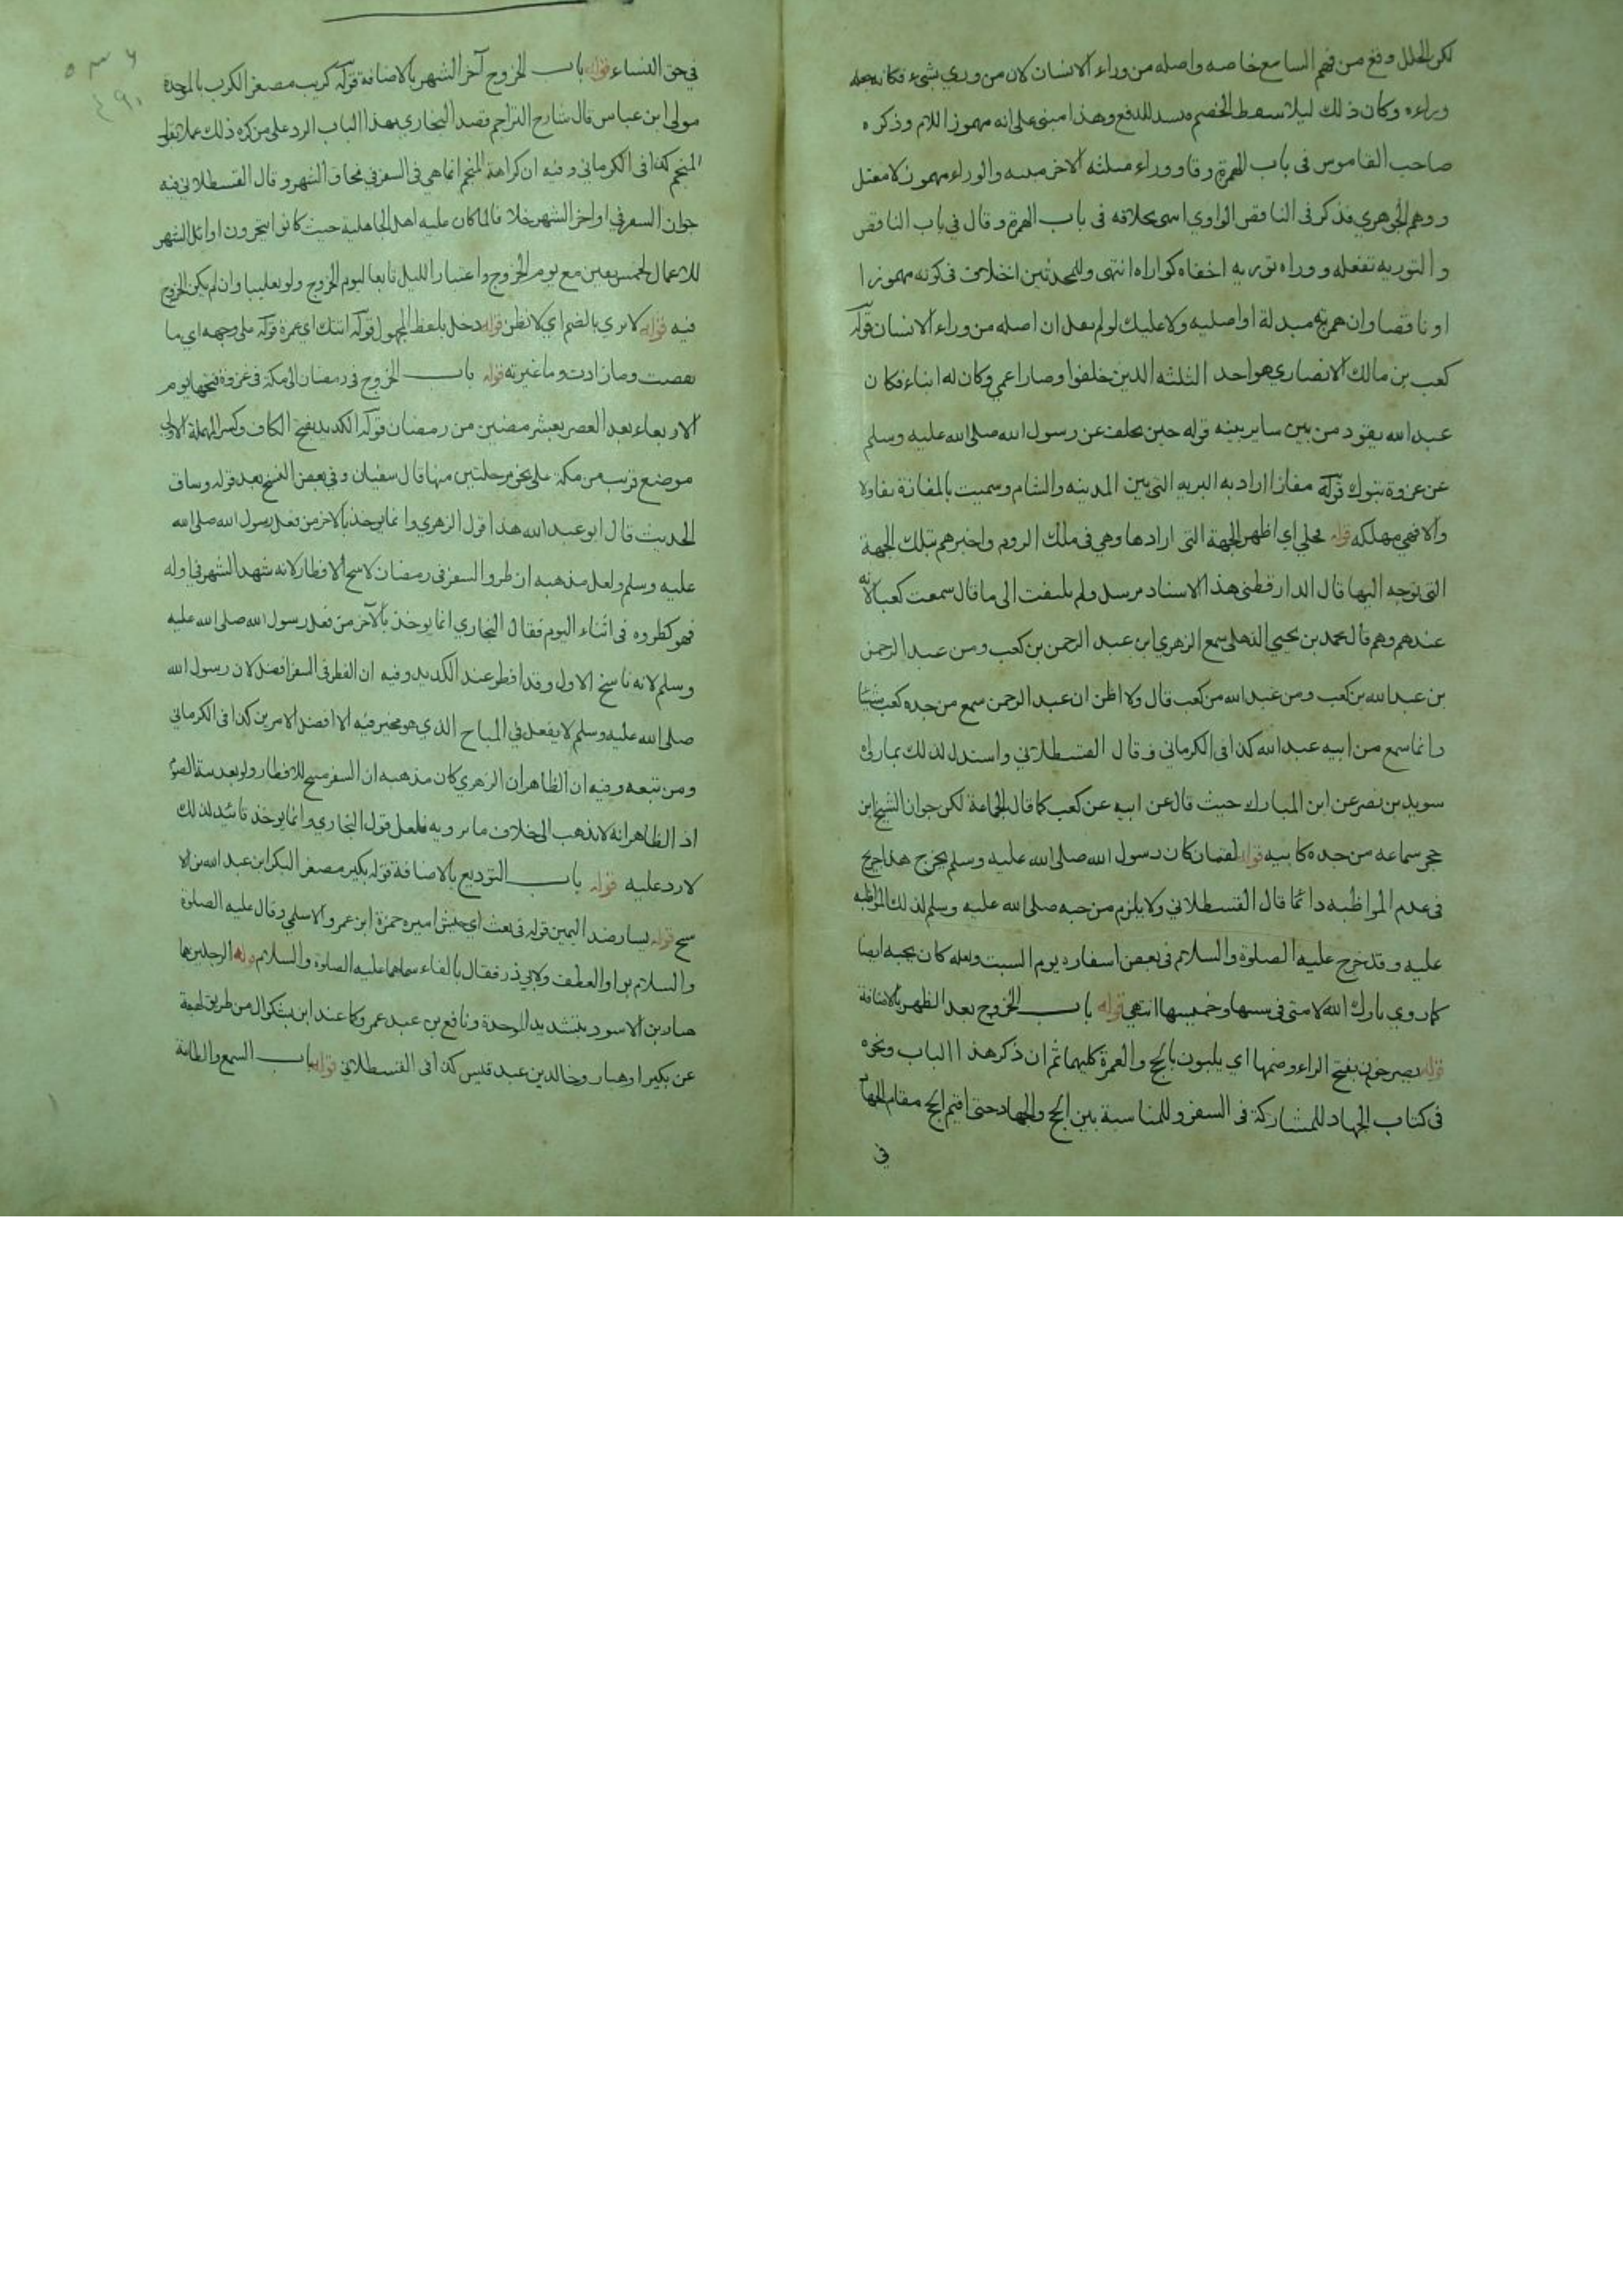 لكن الخلل وقع من فهم السامع خاصه واصله من وراء الانسان لان من وري بشيء فكانه جعله
وراءه وكان ذلك ليلا الخصم للدفع وهذا مبنى على انه مهموز اللام وذكره
صاحب القاموس فى باب الهمزة وقا ووراء مثلثه الاخر مبنيه والوراء مهموز لا معتل
ووهم الجوهري فذكر فى الناقص الواوي بخلافه فى باب الهمزة وقال في باب الناقص
والتوريه تفعله ووراه توريه اخفاه كواراه انتهى وللمحدثين اختلاف فى كونه مهموزا
او ناقصا وان همزته مبدلة او اصليه ولا عليك لو لم ان اصله من وراء الانسان قوله
كعب بن مالك الانصاري هو احد الثلثه الذين خلفوا وصار اعمي وكان له ابناء فكان
عبد الله يقود من بين ساير بنيه قوله حين تخلف عن رسول الله صلى الله عليه وسلم
عن غزوة تبوك قوله مفازا اراد به البريه التى بين المدينه والشام وسميت بالمفازة تفاولا
والا فهي مهلكه قوله فجلي اي اظهر الجهة التى ارادها وهي فى ملك الروم واخبرهم بتلك الجهة
التى توجه اليها قال الدارقطنى هذا الاسناد مرسل ولم يلتفت الى ما قال سمعت كعبا لانه
عندهم وهم قال محمد بن يحيي الذهلى سمع الزهري ابن عبد الرحمن بن كعب ومن عبد الرحمن
بن عبد الله بن كعب ومن عبد الله من كعب قال ولا اظن ان عبد الرحمن سمع من جده كعب شيئا
وانما سمع من ابيه عبد الله كذا فى الكرماني وقال القسطلاني واستدل لذلك بما رواه
سويد بن نصر عن ابن المبارك حيث قال عن ابيه عن كعب كما قال الجماعة لكن جوان الشيخ ابن
حجر سماعه من جده كابيه قوله لقمان كان رسول الله صلى الله عليه وسلم يخرج هذا
فى عدم المواظبه دائما قال القسطلاني ولا يلزم من حبه صلى الله عليه وسلم لذلك المواظبه
عليه وقد خرج عليه الصلوة والسلام فى بعض اسفاره يوم السبت ولعله كان يحبه ايضا
كما روي بارك الله لامتى فى سبتها وخميسها انتهى قوله باب الخروج بعد الظهر بالاضافة
قوله يصرخون بفتح الراء وضمها اي يلبون بالحج والعمرة كليهما ثم ان ذكر هذا الباب ونحوه
فى كتاب الجهاد للمشاركة فى السفر وللمناسبة بين الحج والجهاد حتى اقيم الحج مقام الجهاد
في
في حق النساء قوله باب الخروج آخر الشهر بالاضافة قوله كريب مصغر الكرب بالموحدة
مولى ابن عباس قال شارح التراجم قصد البخاري بهذا الباب الرد على من كره ذلك عملا بقول
المنجم كذا فى الكرماني وفيه ان كراهة المنجم انما هي فى السفر في محاق الشهر وقال القسطلاني فيه
جوان السفر في اواخر الشهر خلافا لما كان عليه اهل الجاهلية حيث كانوا يتحرون اوائل الشهر
للاعمال لخمس بقين مع يوم الخروج واعتبار الليل تابعا ليوم الخروج ولو تغليبا وان لم يكن الخروج
فيه قوله لا نري بالضم اي لا نظن قوله دخل بلفظ المجهول قوله اتتك اي عمرة قوله على وجهه اي ما
نقصت وما زادت وما غيرته قوله باب الخروج فى رمضان الى مكة فى غزوة فتحها يوم
الاربعاء بعد العصر لعشر مضين من رمضان قوله الكديد بفتح الكاف وكسر المهملة الاولى
موضع قريب من مكة على نحو مرحلتين منها قال سفيان وفي بعض النسخ بعد قوله وساق
الحديث قال ابو عبد الله هذا قول الزهري وانما يوخذ بالاخر من فعل رسول الله صلى الله
عليه وسلم ولعل مذهبه ان طرو السفر فى رمضان لا يبيح الافطار لانه شهد الشهر في اوله
فهو كطروه فى اثناء اليوم فقال البخاري انما يوخذ بالآخر من فعل رسول الله صلى الله عليه
وسلم لانه ناسخ الاول وقد افطر عند الكديد وفيه ان الفطر فى السفر افضل لان رسول الله
صلى الله عليه وسلم لا يفعل في المباح الذي هو مخير فيه الا افضل الامرين كذا فى الكرماني
ومن تبعه وفيه ان الظاهر ان الزهري كان مذهبه ان السفر مبيح للافطار ولو بعد الصوم
اذ الظاهر انه لا يذهب الى خلاف ما يرويه فلعل قول البخاري وانما يوخذ تائيد لذلك
لا رد عليه قوله باب التوديع بالاضافة قوله بكير مصغر البكر ابن عبد الله بن الا
شج قوله يسار ضد اليمين قوله فى بعث اي جيش اميره حمزة ابن عمرو الاسلمي وقال عليه الصلوة
والسلام بواو العطف ولابي ذر فقال بالفاء سماهما عليه الصلوة والسلام قوله الرجلين هما
هبار بن الاسود بتشديد الموحدة ونافع بن عبد عمر وكما عند ابن بشكوال من طريق لهيعة
عن بكير او هبار وخالد بن عبد قيس كذا فى القسطلاني قوله باب السمع والطاعة